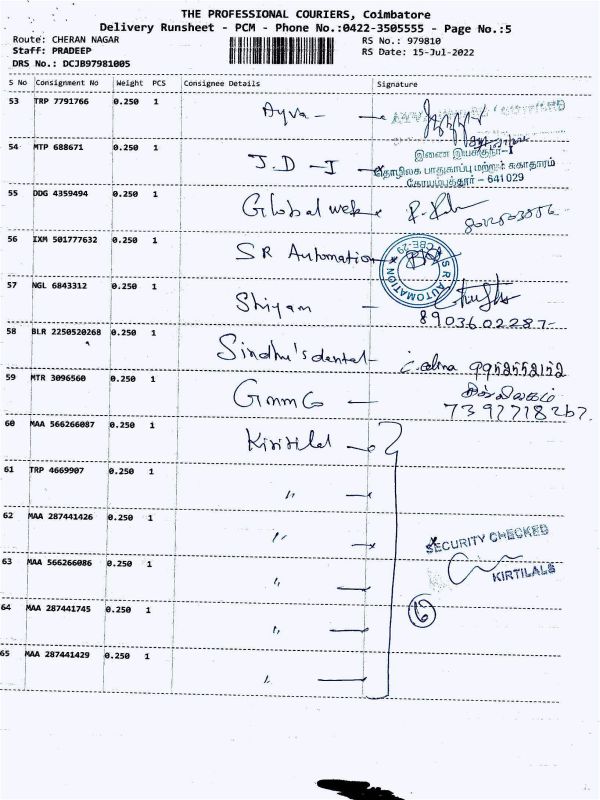 THE PROFESSIONAL COURIERS, Coimbatore
Delivery Runsheet - PCM - Phone No.:0422-3505555 - Page No.:5
Route: CHERAN NAGAR RS No.: 979810
Staff: PRADEEP RS Date: 15-Jul-2022
DRS No.: DCJB97981005
S No Consignment No Weight PCS Consignee Details Signature
53 TRP 7791766 0.250 1 Ayva -
54 MTP 688671 0.250 1 J.D - I
இணை இயக்குநர்-I
தொழிலக பாதுகாப்பு மற்றும் சுகாதாரம்
கோயம்புத்தூர் – 641 029
55 DDG 4359494 0.250 1 Global web
56 IXM 501777632 0.250 1 SR Automation
SR AUTOMATION
CBE-29
57 NGL 6843312 0.250 1 Shiyam -
8903602287
58 BLR 2250520268 0.250 1 Sindhu's dental - 9952552152
59 MTR 3096560 0.250 1 Gmmco -
60 MAA 566266087 0.250 1 Kirtilal
61 TRP 4669907 0.250 1 〃
62 MAA 287441426 0.250 1 〃
SECURITY CHECKED
63 MAA 566266086 0.250 1 〃
KIRTILALS
64 MAA 287441745 0.250 1 〃
6
65 MAA 287441429 0.250 1 〃